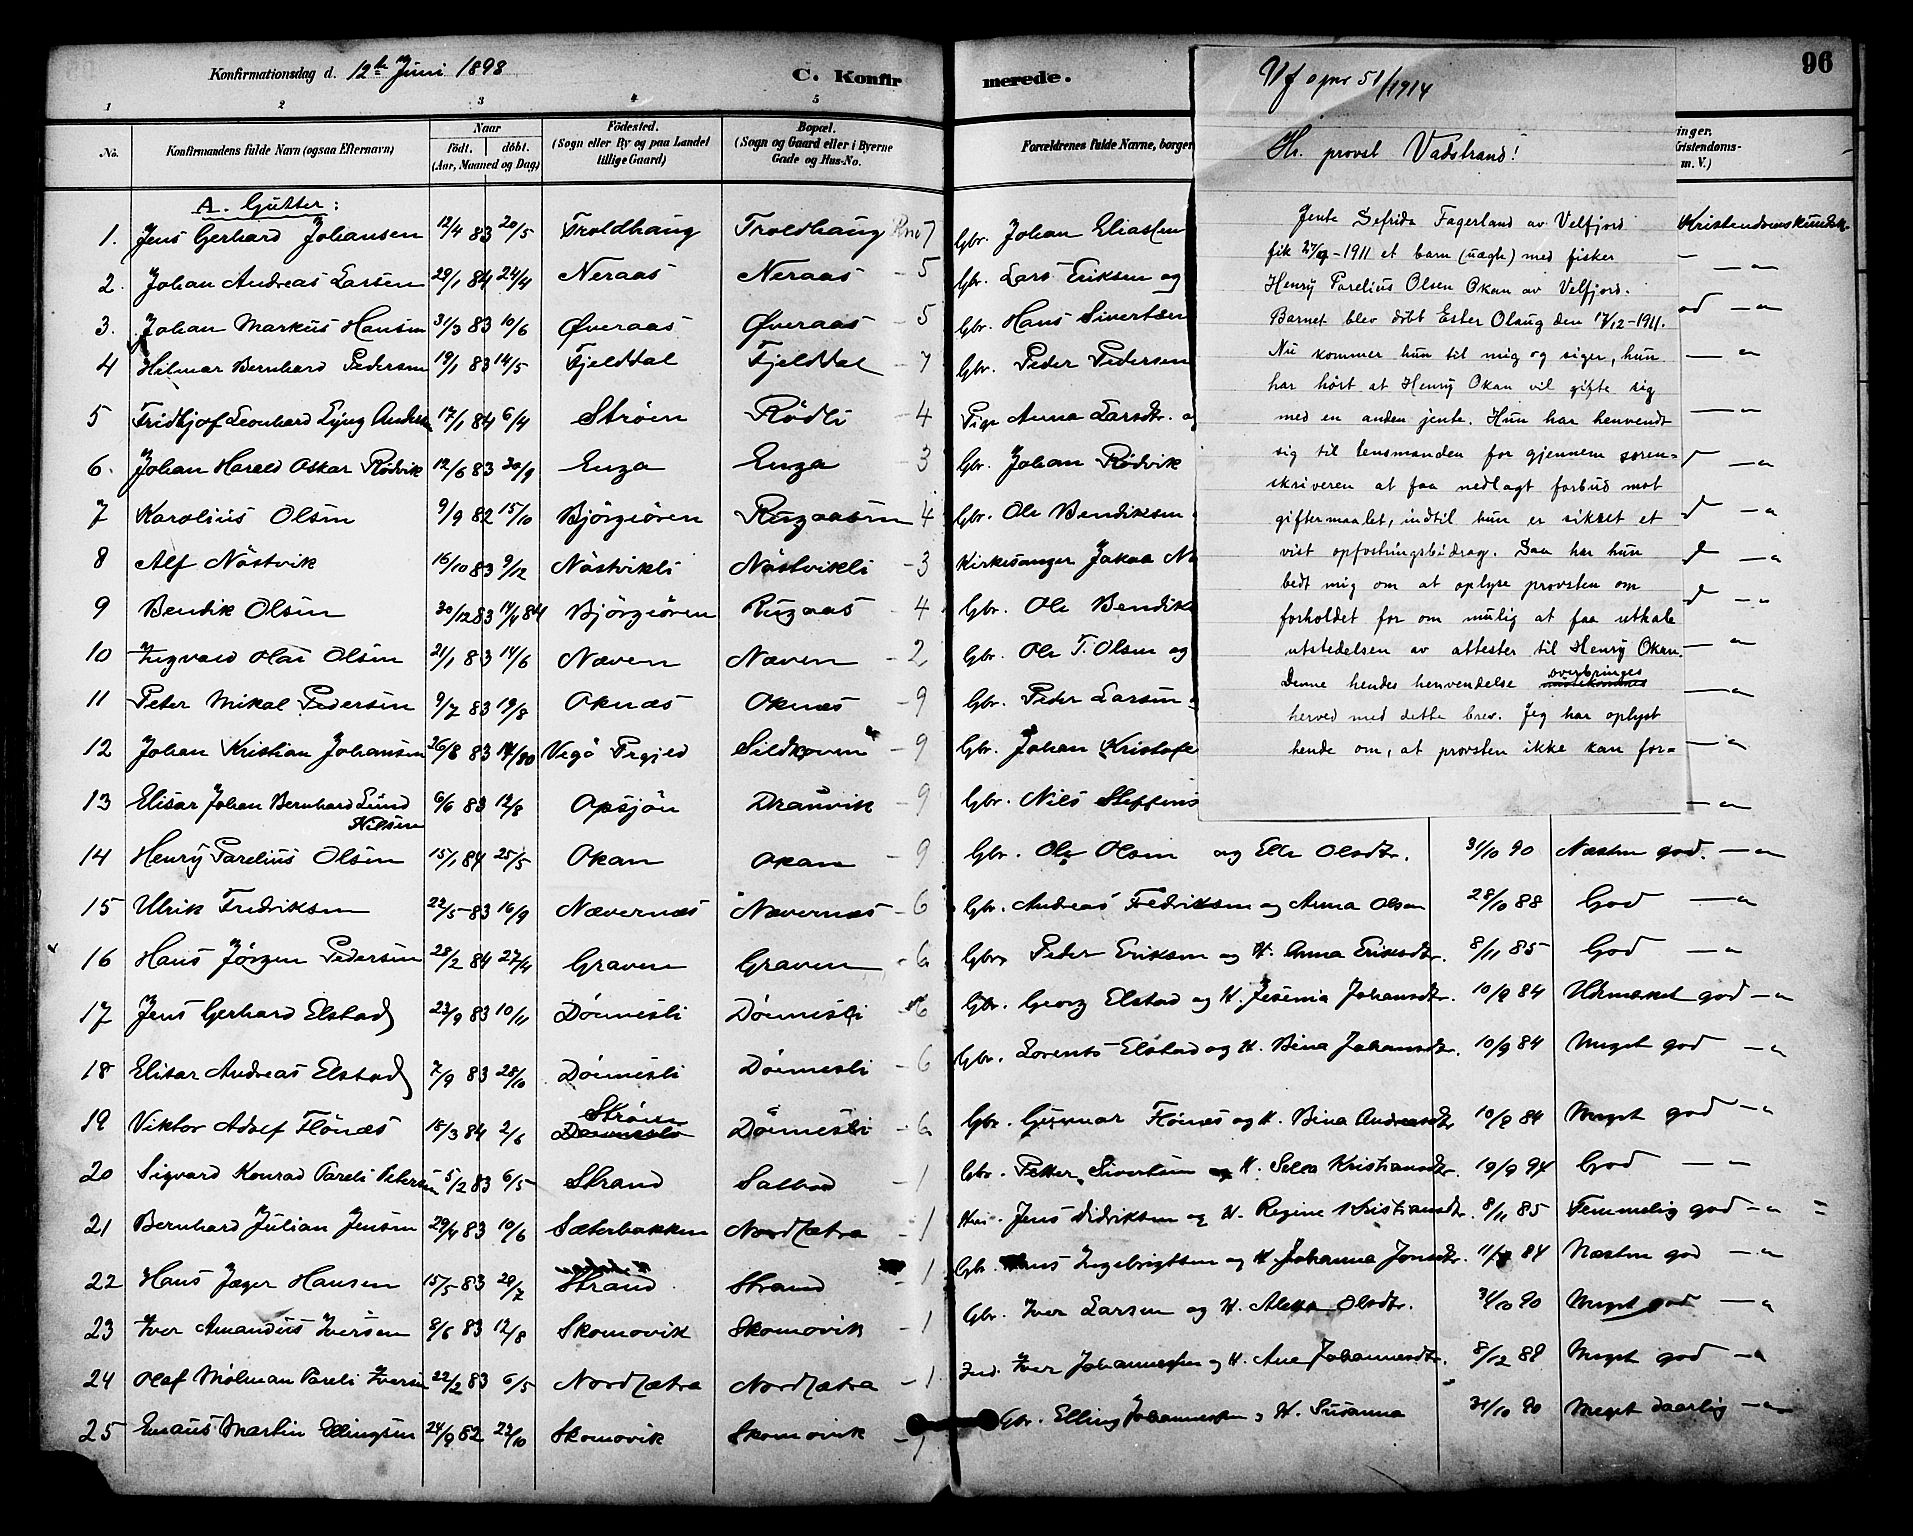 Konfirmationsdag d. 12te Juni 1898
C. Konfir
merede.
96
1 2 3 4 5
No.
Konfirmandens fulde Navn (ogsaa Efternavn)
Naar
födt. döbt.
(Aar, Maaned og Dag)
Födested.
(Sogn eller By og paa Landet
tillige Gaard)
Bopæl.
(Sogn og Gaard eller i Byerne
Gade og Hus-No.
Forældrenes fulde Navne, borger
inger.
Kristendoms-
m. V.)
A. Gutter:
1. Jens Gerhard Johansen 12/4 83 20/5 Troldhaug Troldhaug 7 Gbr. Johan Eliassen Kristendomskundsk.
2. Johan Andreas Larsen 29/1 84 24/4 Neraas Neraas - 5 Gbr. Lars Eriksen og
3. Johan Markus Hansen 31/3 83 10/6 Øveraas Øveraas 5 Gbr. Hans Sivertsen
4 Hilmar Bernhard Pedersen 19/1 83 14/5 Fjelddal Fjelddal - 7 Gbr. Peder Pedersen
5 Fridtjof Leonhard Lyng 17/1 84 6/4 Strøen Rödli - 4 Pige Anna Larsdtr.
6. Johan Harald Oskar Rödvik 12/6 83 30/9 Enga Enga - 3 Gbr. Johan Rödvik
7 Karolius Olsen 9/9 82 15/10 Bjørgøren 4 Gbr. Ole Bendiksen
8 Alf Nöstvik 16/10 83 9/12 Nöstvikli Nöstvikli - 3 Kirkesanger Jakob
9 Bendik Olsen 30/12 83 14/4 84 Bjørgøren Rugaas - 4 Gbr. Ole Bendiks
10 Ingvald Olai Olsen 21/1 83 14/6 Næven Næven - 2 Gbr. Ole T. Olsen og
11 Peter Mikal Pedersen 9/7 83 19/8 Oknæs Oknæs - 9 Gbr. Peder Larsen
12 Johan Kristian Johansen 26/8 83 Vegö Prgjeld - 9 Gbr. Johan Kristofe
13 Elisar Johan Bernhard Lund 6/6 83 12/8 Opsjön - 9 Gbr. Nils Steffens
Nilsen
14 Henry Parelius Olsen 15/1 84 25/5 Okan Okan - 9 Gbr. Ole Olsen og Elle Olsdtr. 31/10 90 Næsten god. — " —
15 Ulrik Fredriksen 22/5 83 16/9 Nævernæs Nævernæs - 6 Gbr. Andreas Fredriksen og Anna Olsen 28/10 88 God — " —
16 Hans Jørgen Pedersen 28/2 84 27/4 Graven Graven - 6 Gbr. Peder Eriksen og H. Anna Eriksdtr. 8/11 85 God — " —
17 Jens Gerhard Elstad 23/9 83 10/11 Dönnesli Dönnesli - 6 Gbr. Georg Elstad og H. Jesenia Johansdtr. 10/9 84 Udmærket god — " —
18 Elisar Andreas Elstad 7/9 83 28/10 Dönnesli Dönnesli - 6 Gbr. Lorents Elstad og H. Bina Johansdtr. 10/9 84 Meget god — " —
19 Viktor Adolf Flönæs 18/3 84 2/6 Strøen Dönnesli Dönnesli - 6 Gbr. Gunnar Flönæs og H. Bina Andreasdtr 10/9 84 Meget god — " —
20 Sigvard Konrad Pareli Petersen 5/2 83 6/5 Strand - 1 Gbr. Petter Sivertsen og H. Kristiansdtr. 19/9 94 God — " —
21 Bernhard Julian Jensen 29/4 83 10/6 Sæterbakken Nordsætra - 1 Jens Didriksen og H. Regine Kristiansdtr. 8/11 85 Temmelig god — " —
22 Hans Jæger Hansen 15/5 83 29/7 Strand Strand - 1 Gbr. Hans Ingebrigtsen og H. Johanna Jonsdtr. 84 Næsten god — " —
23 Iver Amandus Iversen 8/6 83 12/8 Skomovik Skomovik - 1 Gbr. Iver Larsen og H. Olsdtr. 31/10 90 Meget god — " —
24 Olaf Mølman Pareli Iversen 22/2 83 6/5 Nordsætra Nordsætra - 1 Ind. Iver Johannessen og H. Ane Johannesdtr. 8/12 88 Meget god — " —
25 Martin Ellingsen 24/9 82 22/10 Skomovik Skomovik - 1 Gbr. Elling Johannessen og H. Susanna 31/10 90 Meget daarlig — " —
Vf opnr 51/1914
Hr. provst Vadstrand!
Jente Defrida Fagerland av Velfjord
fik 27/9-1911 et barn (uægte) med fisker
Henry Parelius Olsen Okan av Velfjord.
Barnet blev döbt Ester Olaug den 17/12-1911.
Nu kommer hun til mig og siger, hun
har hört at Henry Okan vil gifte sig
med en anden jente. Hun har henvendt
sig til lensmanden for gjennem soren=
skriveren at faa nedlagt forbud mot
giftermaalet, indtil hun er sikret et
vist opfostringsbidrag. Saa har hun
bedt mig om at oplyse provsten om
forholdet for om mulig at faa utsat
utstedelsen av attester til Henry Okan.
Denne hendes henvendelse overbringes
herved med dette brev. Jeg har oplyst
hende om, at provsten ikke kan for=